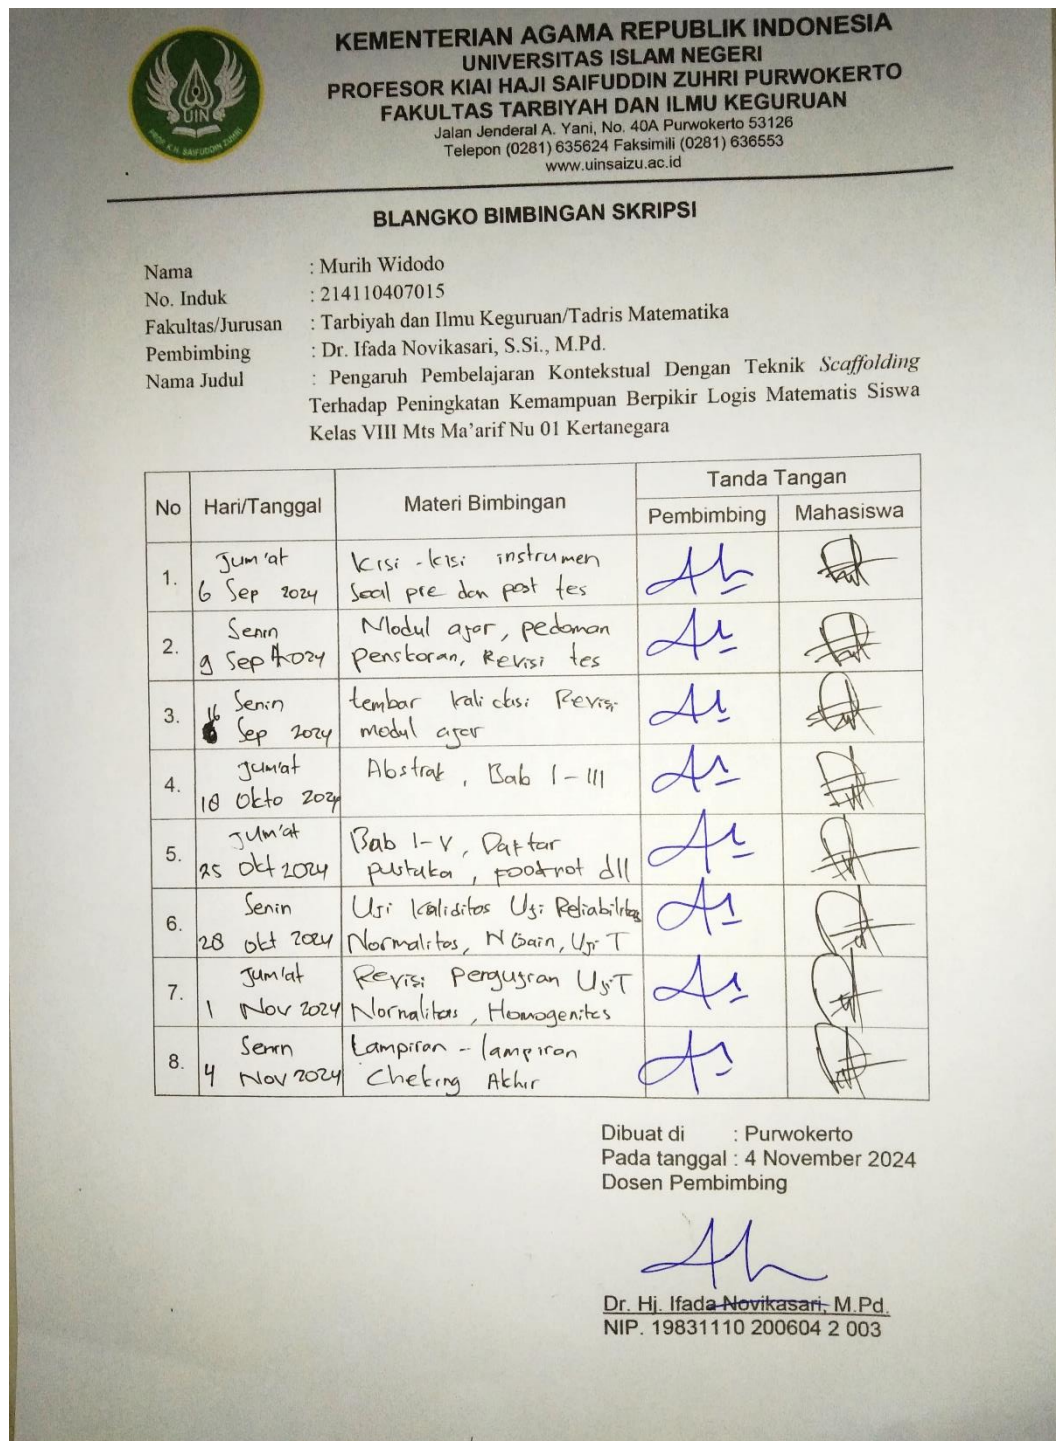 UIN
PROF. K.H. SAIFUDDIN ZUHRI
KEMENTERIAN AGAMA REPUBLIK INDONESIA
UNIVERSITAS ISLAM NEGERI
PROFESOR KIAI HAJI SAIFUDDIN ZUHRI PURWOKERTO
FAKULTAS TARBIYAH DAN ILMU KEGURUAN
Jalan Jenderal A. Yani, No. 40A Purwokerto 53126
Telepon (0281) 635624 Faksimili (0281) 636553
www.uinsaizu.ac.id
BLANGKO BIMBINGAN SKRIPSI
Nama : Murih Widodo
No. Induk : 214110407015
Fakultas/Jurusan : Tarbiyah dan Ilmu Keguruan/Tadris Matematika
Pembimbing : Dr. Ifada Novikasari, S.Si., M.Pd.
Nama Judul : Pengaruh Pembelajaran Kontekstual Dengan Teknik Scaffolding
Terhadap Peningkatan Kemampuan Berpikir Logis Matematis Siswa
Kelas VIII Mts Ma'arif Nu 01 Kertanegara
No Hari/Tanggal Materi Bimbingan Tanda Tangan
Pembimbing Mahasiswa
1. Jum'at Kisi-kisi instrumen
6 Sep 2024 Soal pre dan post tes
2. Senin Modul ajar, pedoman
9 Sep 2024 penskoran, Revisi tes
3. Senin lembar validasi Revisi
16 Sep 2024 modul ajar
4. Jum'at Abstrak, Bab I-III
18 Okto 2024
5. Jum'at Bab I-V, Daftar
25 Okt 2024 pustaka, footnot dll
6. Senin Uji Validitas Uji Reliabilitas
28 Okt 2024 Normalitas, N Gain, Uji T
7. Jum'at Revisi Pengujian Uji T
1 Nov 2024 Normalitas, Homogenitas
8. Senin Lampiran-lampiran
4 Nov 2024 Cheking Akhir
Dibuat di : Purwokerto
Pada tanggal : 4 November 2024
Dosen Pembimbing
Dr. Hj. Ifada Novikasari, M.Pd.
NIP. 19831110 200604 2 003